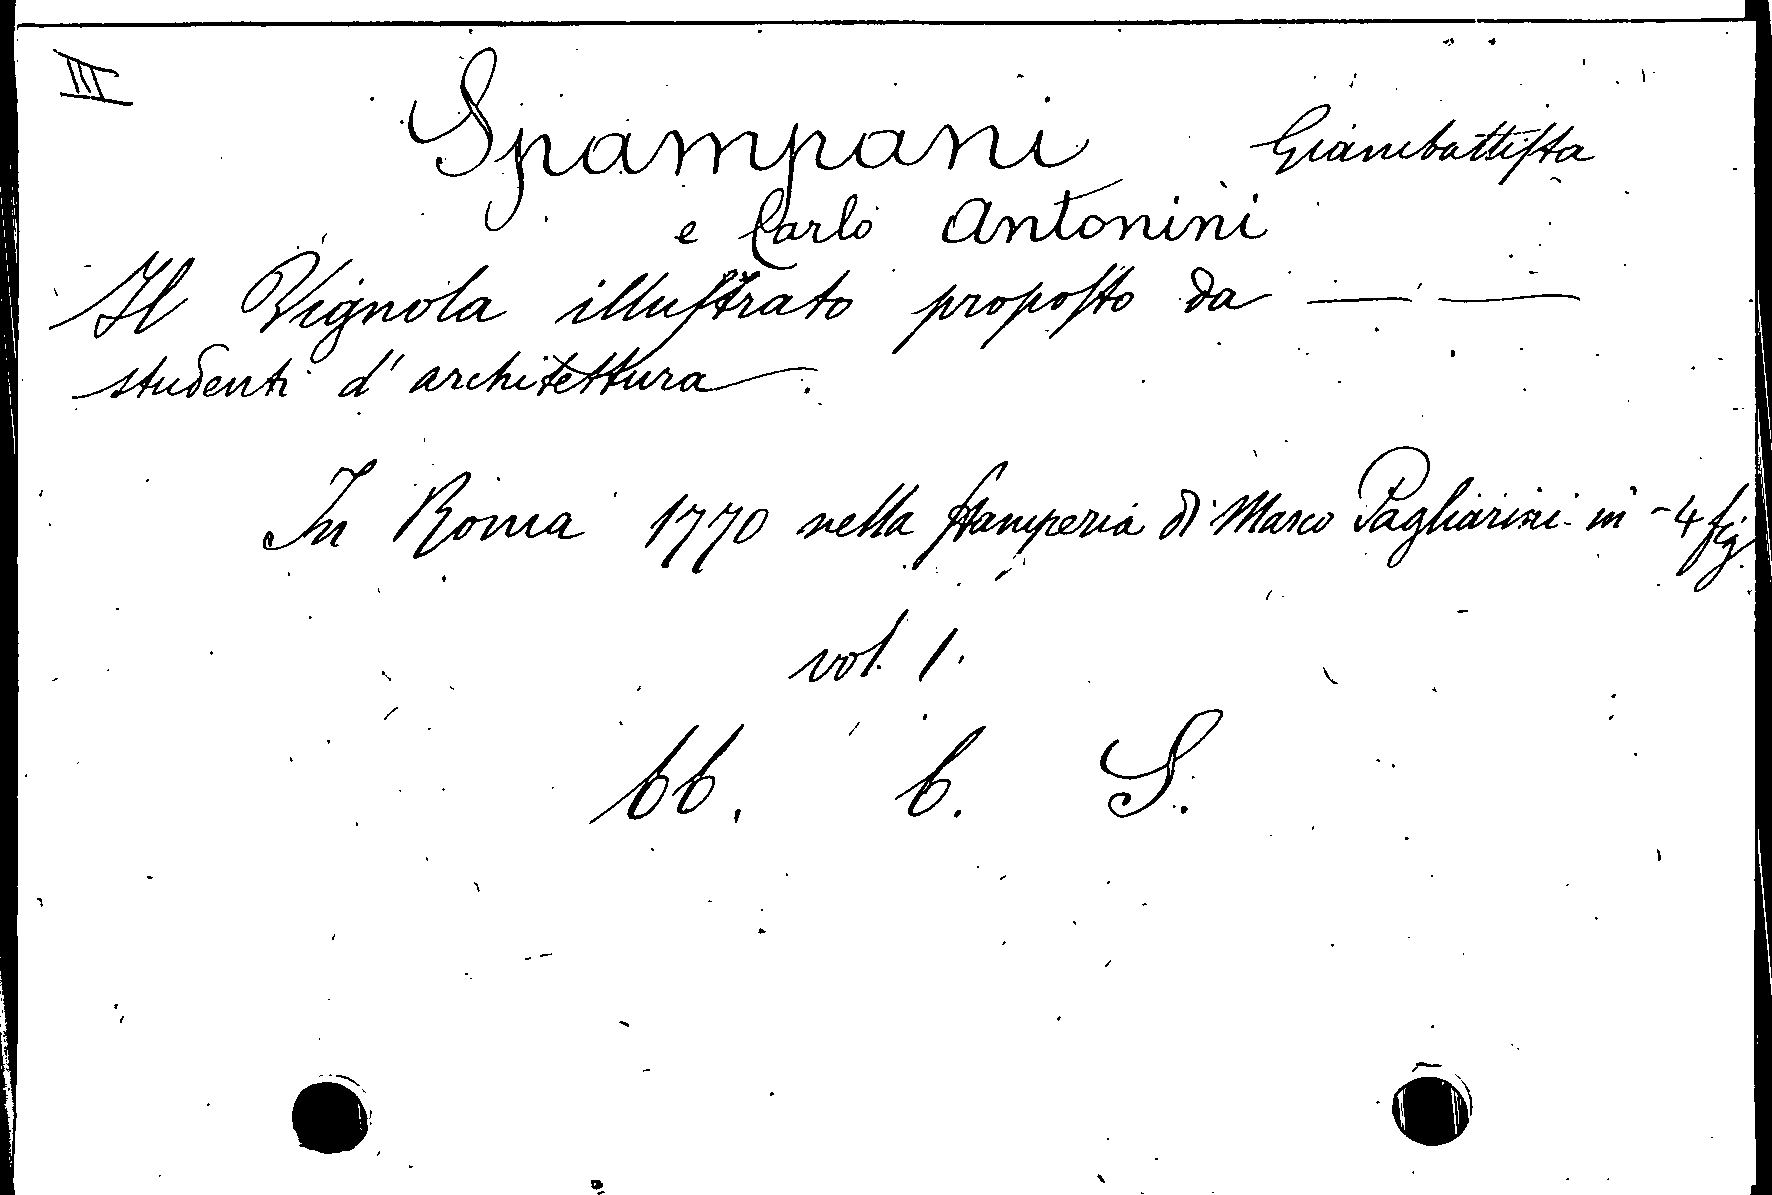 III
Spampani Giambattista
e Carlo Antonini
Il Vignola illustrato proposto da — —
studenti d'architettura.
In Roma 1770 nella stamperia di Marco Pagliarini in-4 fig.
vol. 1.
66. 6. S.